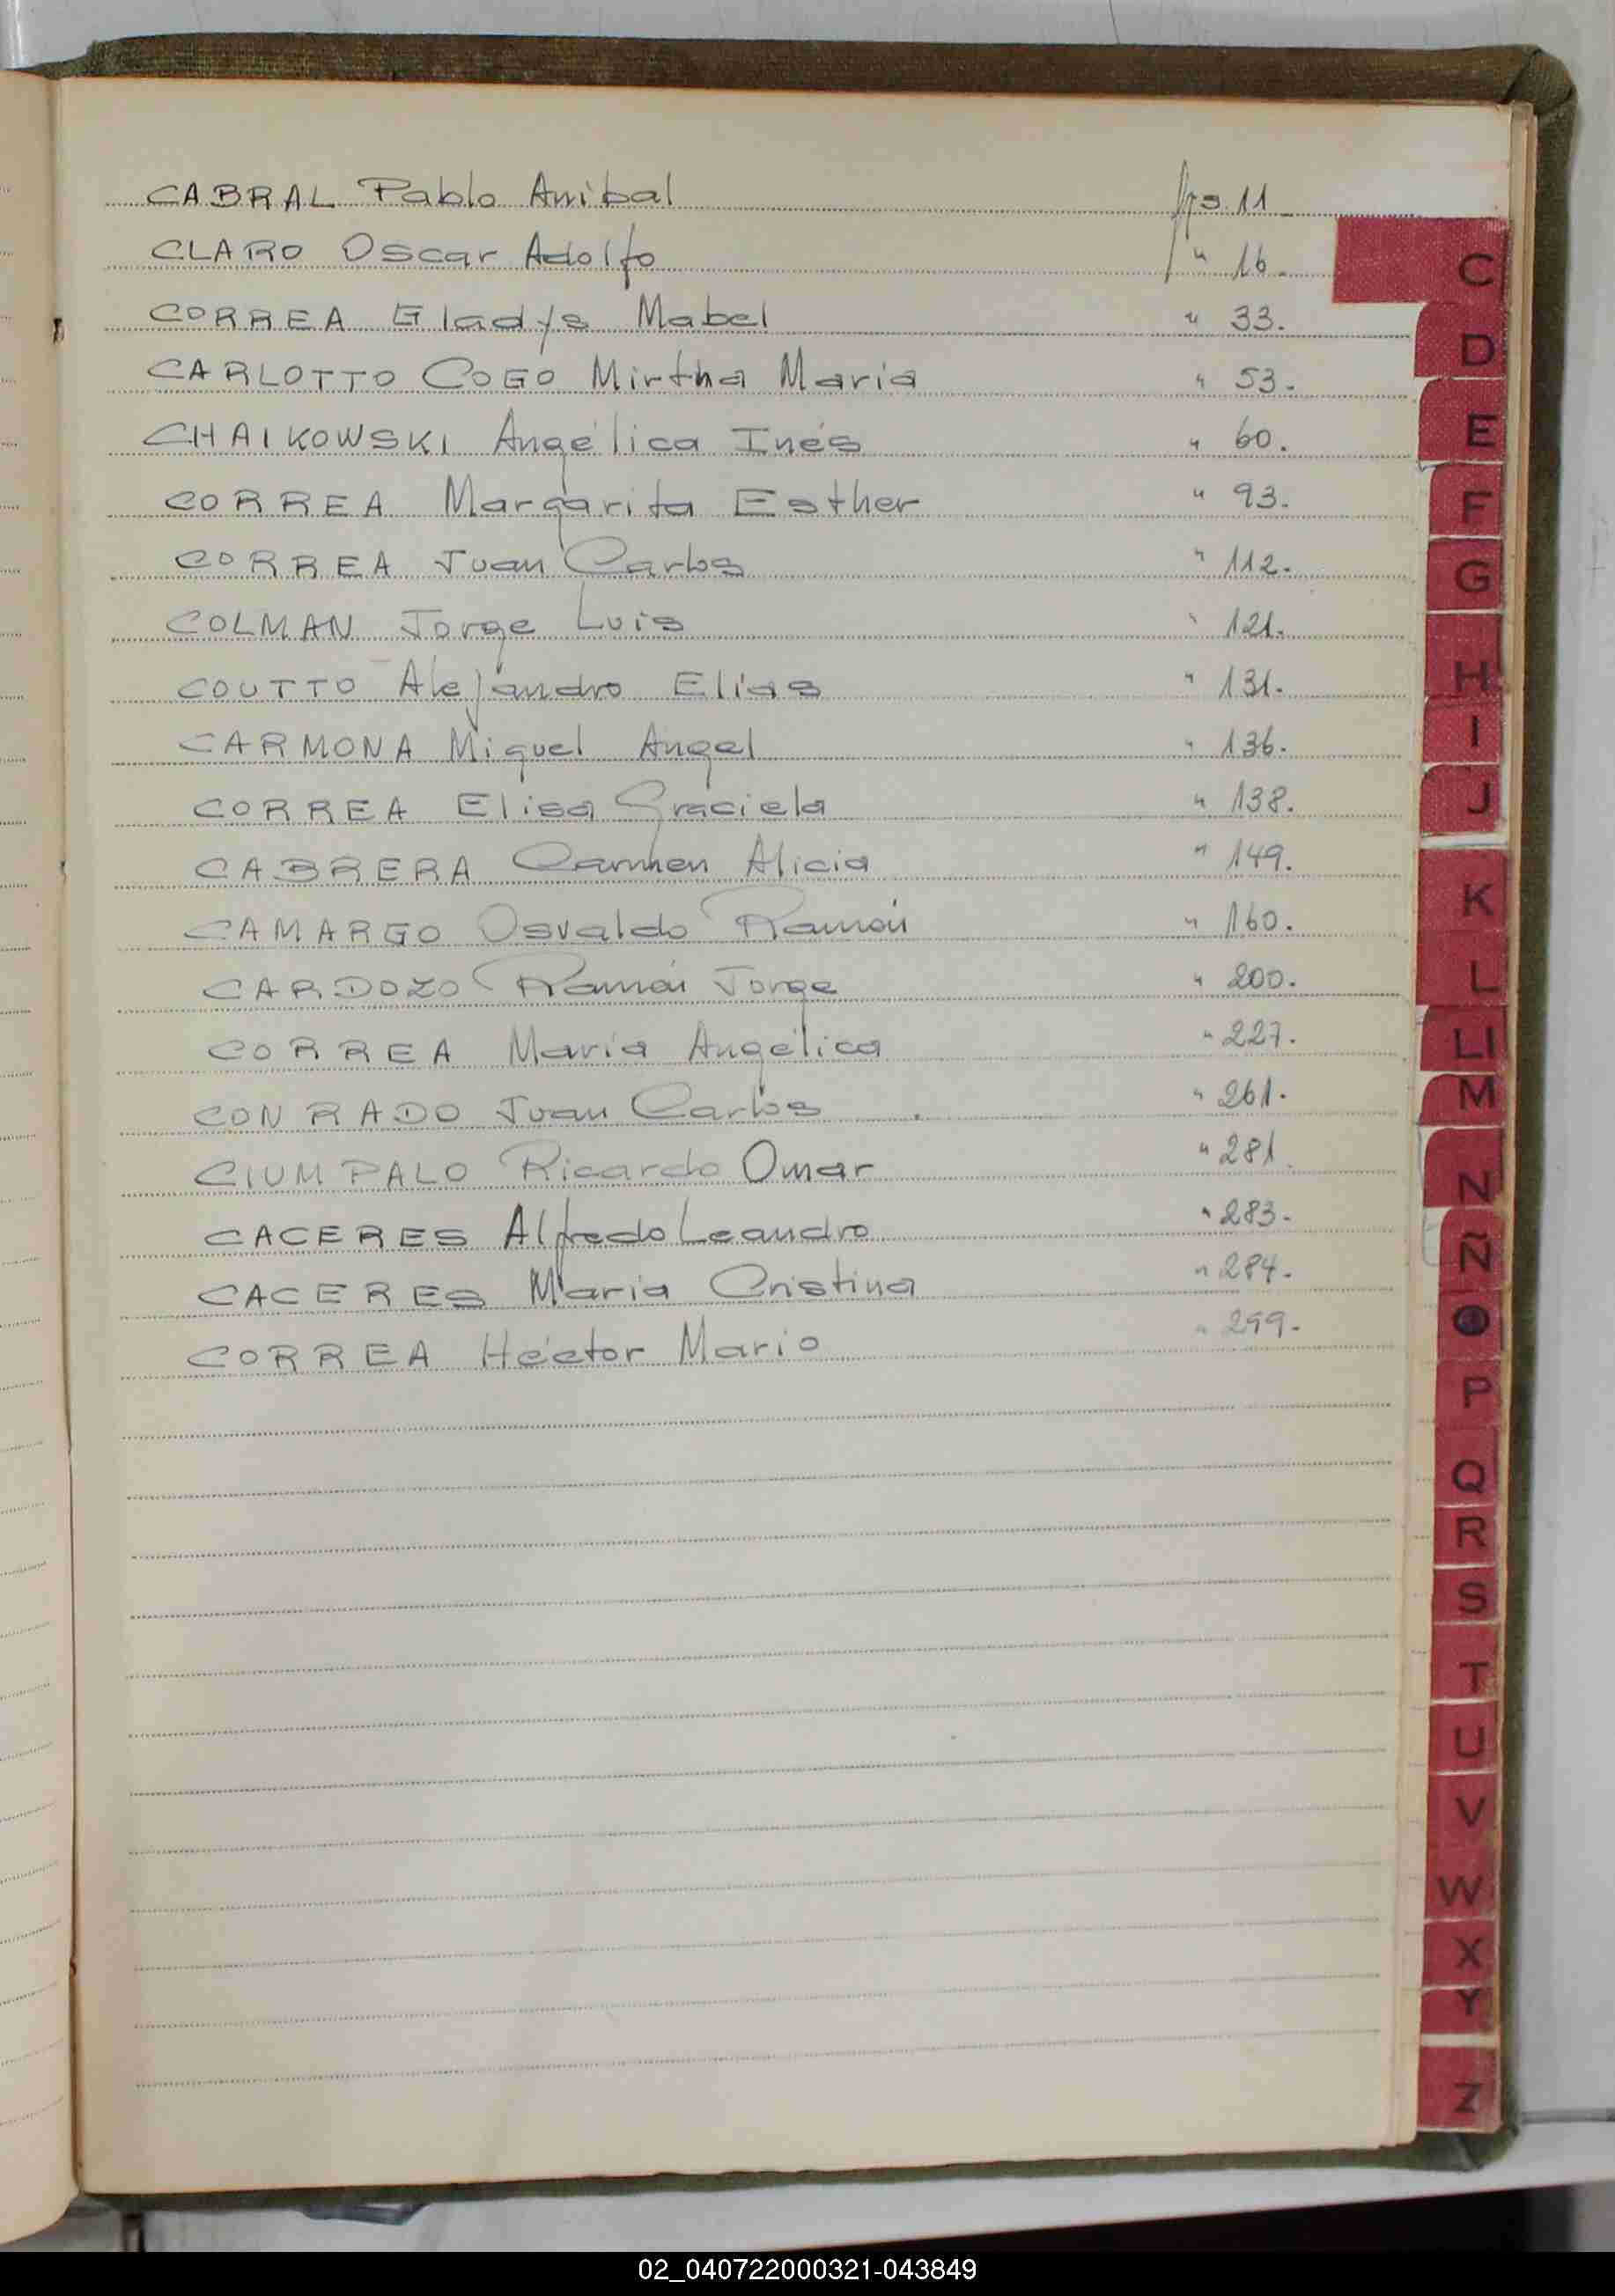 CABRAL Pablo Anibal fjs. 11
CLARO Oscar Adolfo " 16.
CORREA Gladys Mabel " 33.
CARLOTTO COGO Mirtha Maria " 53.
CHAIKOWSKI Angélica Inés " 60.
CORREA Margarita Esther " 93.
CORREA Juan Carlos " 112.
COLMAN Jorge Luis " 121.
COUTTO Alejandro Elias " 131.
CARMONA Miguel Angel " 136.
CORREA Elisa Graciela " 138.
CABRERA Carmen Alicia " 149.
CAMARGO Osvaldo Ramón " 160.
CARDOZO Ramón Jorge " 200.
CORREA Maria Angélica " 227.
CONRADO Juan Carlos " 261.
CIUMPALO Ricardo Omar " 281
CACERES Alfredo Leandro " 283.
CACERES Maria Cristina " 284.
CORREA Héctor Mario " 299.
C
D
E
F
G
H
I
J
K
L
Ll
M
N
Ñ
O
P
Q
R
S
T
U
V
W
X
Y
Z
02_040722000321-043849